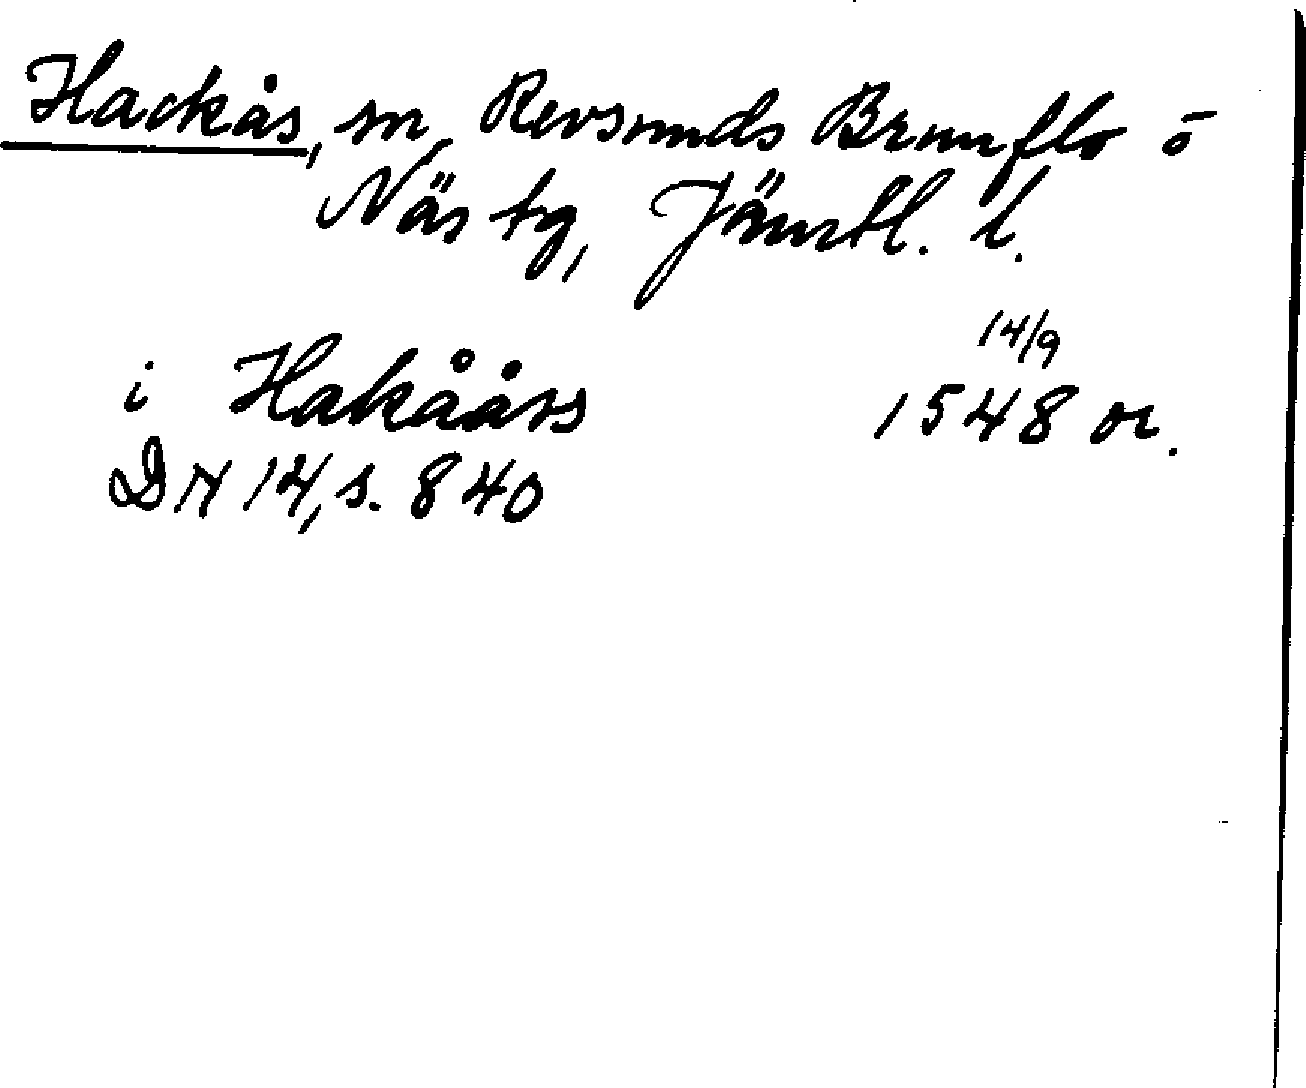 Hackås, sn, Revsunds Brunflo o
Näs tg, Jämtl. l.
i Hakååss 14/9 1548 or.
DN 14, s. 840